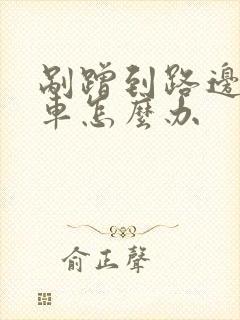 剐蹭到路邊
車怎麼办
俞正聲